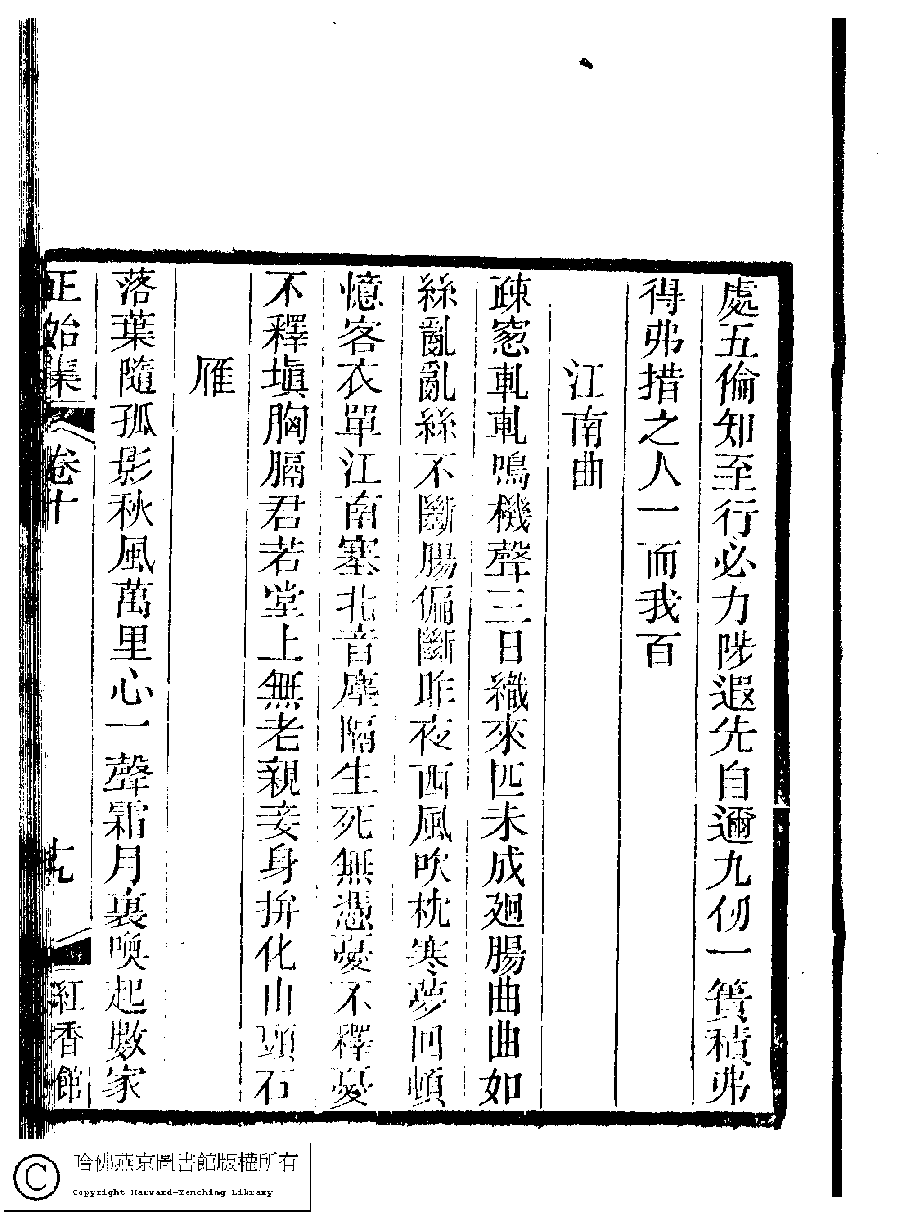 處五倫知至行必力陟遐先自邇九仞一簣積弗
得弗措之人一而我百
江南曲
疎窓軋軋鳴機聲三日織來匹未成廻腸曲曲如
絲亂亂絲不斷腸偏斷昨夜西風吹枕寒夢回頓
憶客衣單江南塞北音塵隔生死無憑憂不釋憂
不釋塡胸膈君若堂上無老親妾身拚化山頭石
雁
落葉隨孤影秋風萬里心一聲霜月裏喚起數家
正始集 卷十 十九 紅香館
哈佛燕京圖書館版權所有
Copyright Harvard-Yenching Library